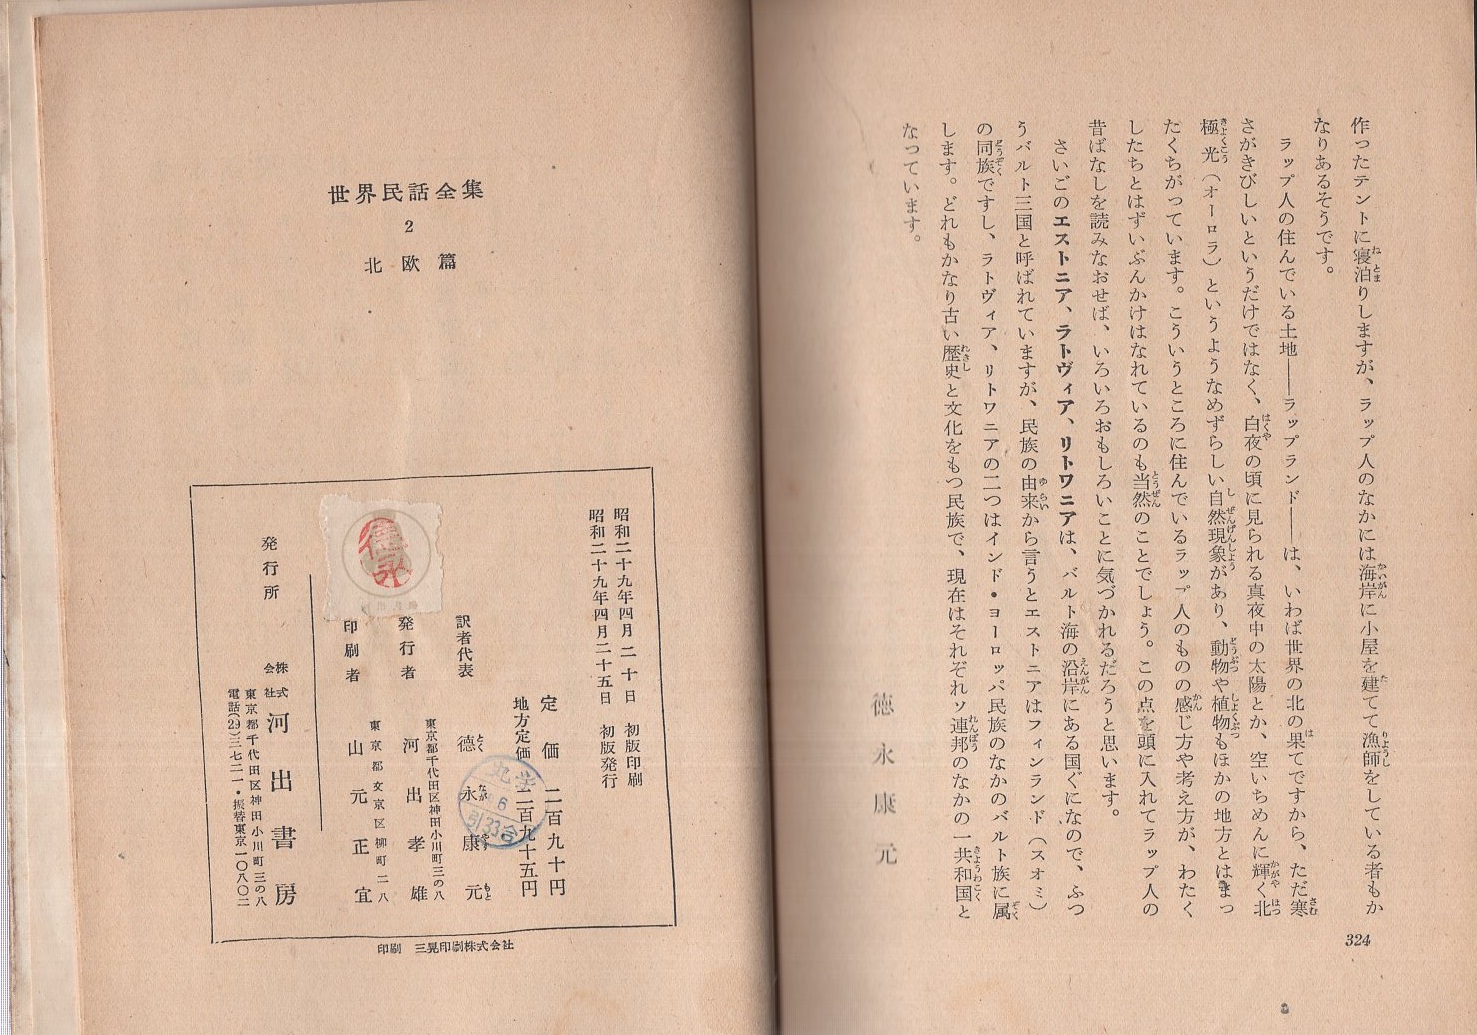 作ったテントに寝泊りしますが、ラップ人のなかには海岸に小屋を建てて漁師をしている者もか
なりあるそうです。
ラップ人の住んでいる土地――ラップランド――は、いわば世界の北の果てですから、ただ寒
さがきびしいというだけではなく、白夜の頃に見られる真夜中の太陽とか、空いちめんに輝く北
極光（オーロラ）というようなめずらしい自然現象があり、動物や植物もほかの地方とはまっ
たくちがっています。こういうところに住んでいるラップ人のものの感じ方や考え方が、わたく
したちとはずいぶんかけはなれているのも当然のことでしょう。この点を頭に入れてラップ人の
昔ばなしを読みなおせば、いろいろおもしろいことに気づかれるだろうと思います。
さいごのエストニア、ラトヴィア、リトワニアは、バルト海の沿岸にある国ぐになので、ふつ
うバルト三国と呼ばれていますが、民族の由来から言うとエストニアはフィンランド（スオミ）
の同族ですし、ラトヴィア、リトワニアの二つはインド・ヨーロッパ民族のなかのバルト族に属
します。どれもかなり古い歴史と文化をもつ民族で、現在はそれぞれソ連邦のなかの一共和国と
なっています。
徳永康元
324
世界民話全集
2
北欧篇
昭和二十九年四月二十日 初版印刷
昭和二十九年四月二十五日 初版発行
定価 二百九十円
地方定価 二百九十五円
訳者代表 徳永康元
東京都千代田区神田小川町三の八
発行者 河出孝雄
東京都文京区柳町二八
印刷者 山元正宜
発行所 株式会社 河出書房
東京都千代田区神田小川町三の八
電話(29)三七二一・振替東京一〇八〇二
印刷 三晃印刷株式会社
徳永